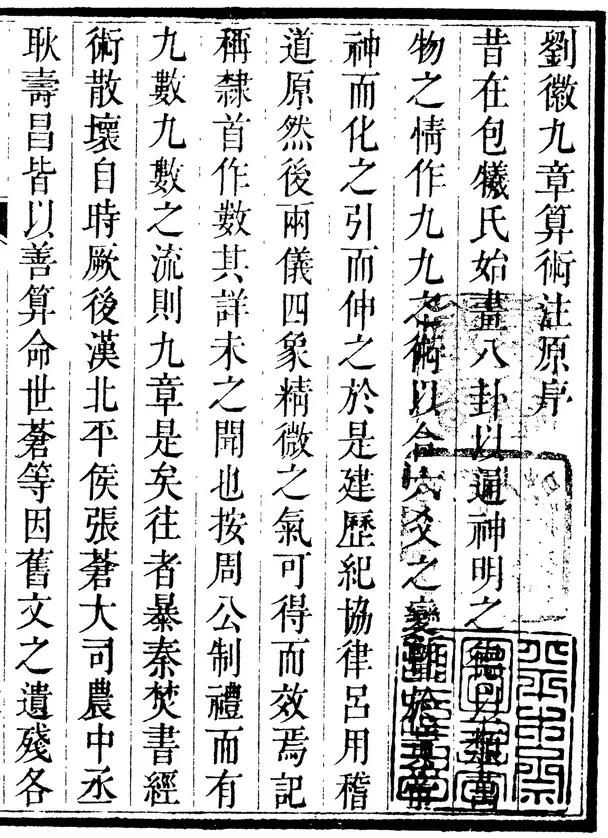 劉徽九章算術注原序
昔在包犧氏始畫八卦以通神明之德以類萬
物之情作九九之術以合六爻之變暨於黃帝
神而化之引而伸之於是建歷紀協律呂用稽
道原然後兩儀四象精微之氣可得而效焉記
稱隸首作數其詳未之聞也按周公制禮而有
九數九數之流則九章是矣往者暴秦焚書經
術散壞自時厥後漢北平侯張蒼大司農中丞
耿壽昌皆以善算命世蒼等因舊文之遺殘各